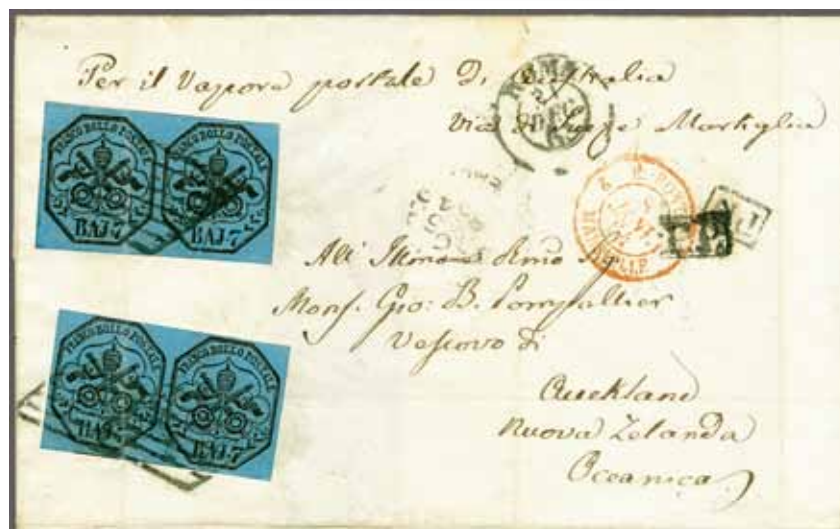 Per il Vapore postale d'Australia
Via di Suez Marsiglia
ROMA
DEC
MARSEILLE
P.P.
FRANCO BOLLO POSTALE
BAJ 7
FRANCO BOLLO POSTALE
BAJ 7
All' Illmo e Rmo Sig
Monsr. Gio: B. Pompallier
Vescovo di
Auckland
Nuova Zelanda
Oceanica
FRANCO BOLLO POSTALE
BAJ 7
FRANCO BOLLO POSTALE
BAJ 7